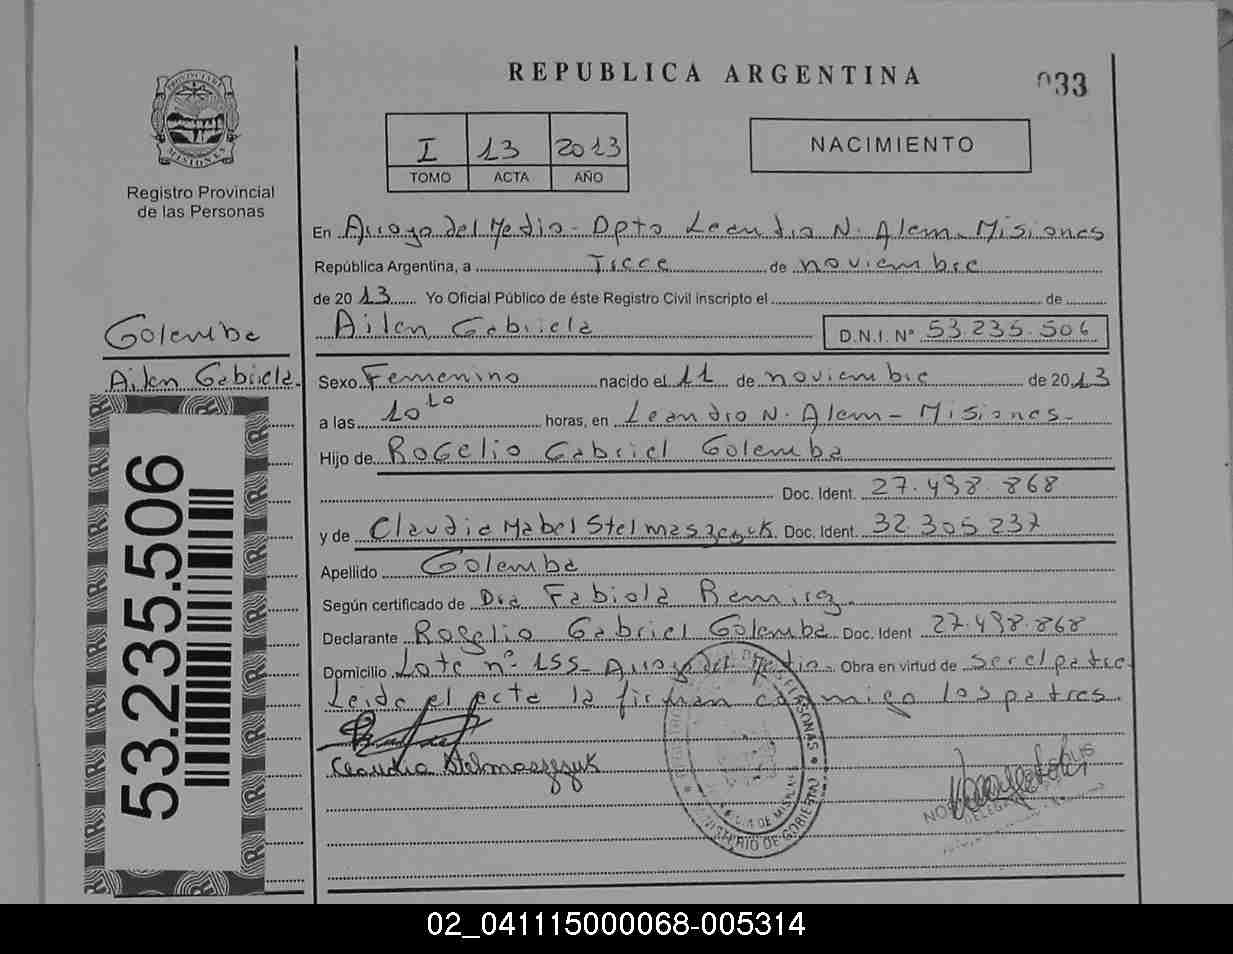 REPUBLICA ARGENTINA
033
PROVINCIA DE MISIONES
Registro Provincial
de las Personas
I 13 2013
TOMO ACTA AÑO
NACIMIENTO
En Arroyo del Medio - Dpto Leandro N. Alem - Misiones
República Argentina, a Trece de noviembre
de 2013 Yo Oficial Público de éste Registro Civil inscripto el de
Golemba
Ailen Gabriela
Ailen Gabriela D.N.I. N° 53.235.506
Sexo Femenino nacido el 11 de noviembre de 2013
a las 10 10 horas, en Leandro N. Alem - Misiones -
Hijo de Rogelio Gabriel Golemba
Doc. Ident. 27.498.868
y de Claudia Mabel Stelmaszczuk Doc. Ident. 32.305.237
Apellido Golemba
Según certificado de Dra Fabiola Ramirez
Declarante Rogelio Gabriel Golemba Doc. Ident 27.498.868
Domicilio Lote n° 155 - Arroyo del Medio - Obra en virtud de ser el padre
Leida el acta la firman conmigo los padres.
Claudia Stelmaszczuk
53.235.506
MINISTERIO DE GOBIERNO
02_041115000068-005314